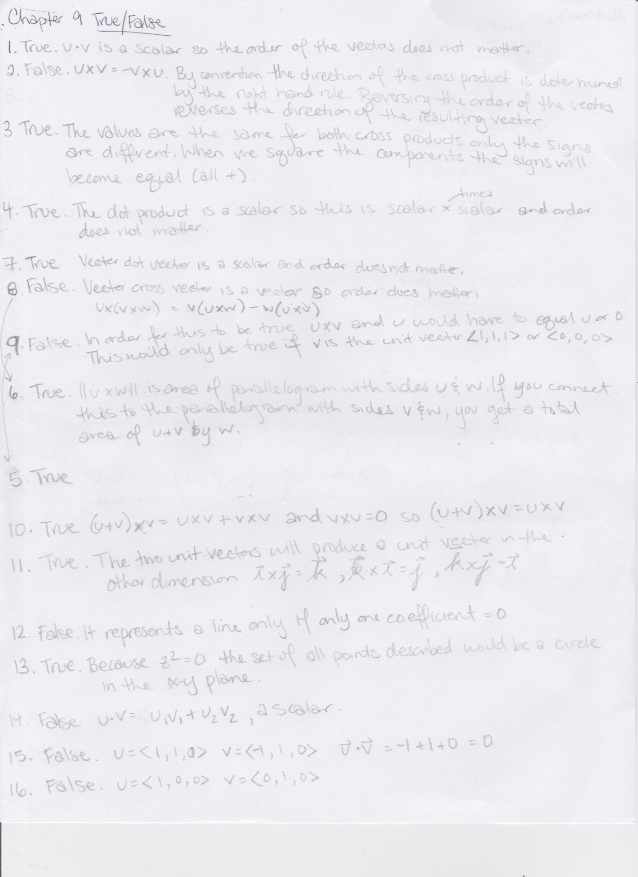 . Chapter 9 True/False
1. True. U·V is a scalar so the order of the vectors does not matter.
2. False. UXV = -VXU. By convention the direction of the cross product is determined
by the right hand rule. Reversing the order of the vectors
reverses the direction of the resulting vector.
3 True. The values are the same for both cross products only the signs
are different. When we square the components the signs will
become equal (all +).
times
4. True. The dot product is a scalar so this is scalar x scalar and order
does not matter.
7. True Vector dot vector is a scalar and order does not matter.
8. False. Vector cross vector is a vector so order does matter.
UX(VXW) = V(UXW) - W(UXV)
9. False. In order for this to be true UXV and U would have to equal U or 0
This would only be true if V is the unit vector <1,1,1> or <0,0,0>
6. True. ||U X W|| is area of parallelogram with sides U & W. If you connect
this to the parallelogram with sides V & W, you get a total
area of U+V by W.
5. True
10. True (U+V)XV = UXV + VXV and VXV=0 so (U+V)XV = UXV
11. True. The two unit vectors will produce a unit vector in the
other dimension i⃗ x j⃗ = k⃗, k⃗ x i⃗ = j⃗, k⃗ x j⃗ = i⃗
12. False. It represents a line only if only one coefficient = 0.
13. True. Because z²=0 the set of all points described would be a circle
in the x-y plane.
14. False U·V = U₁V₁ + U₂V₂, a scalar.
15. False. U=<1,1,0> V=<-1,1,0> V⃗·V⃗ = -1+1+0 = 0
16. False. U=<1,0,0> V=<0,1,0>